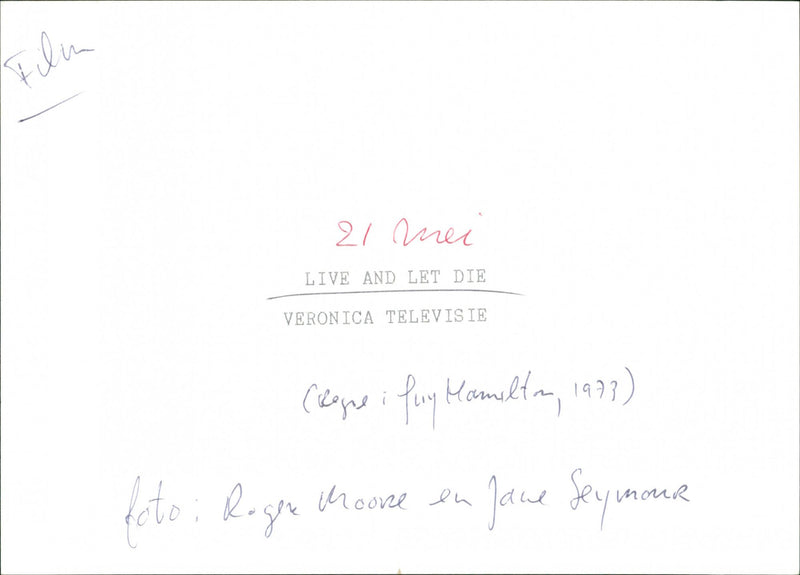 Film
21 Mei
LIVE AND LET DIE
VERONICA TELEVISIE
(Regie: Guy Hamilton, 1973)
foto: Roger Moore en Jane Seymour